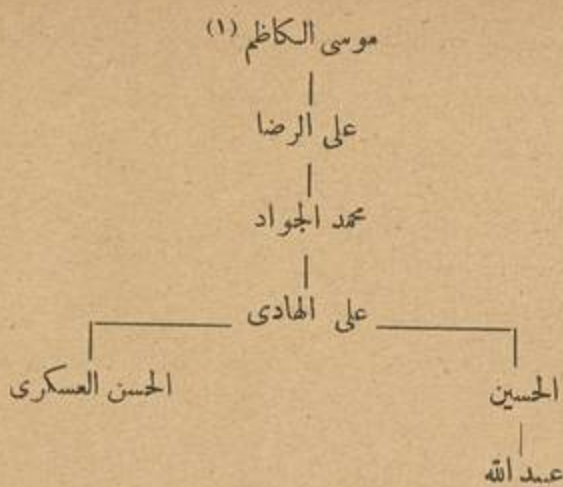 موسى الكاظم (١)
على الرضا
محمد الجواد
على الهادى
الحسين
الحسن العسكرى
عبيد الله